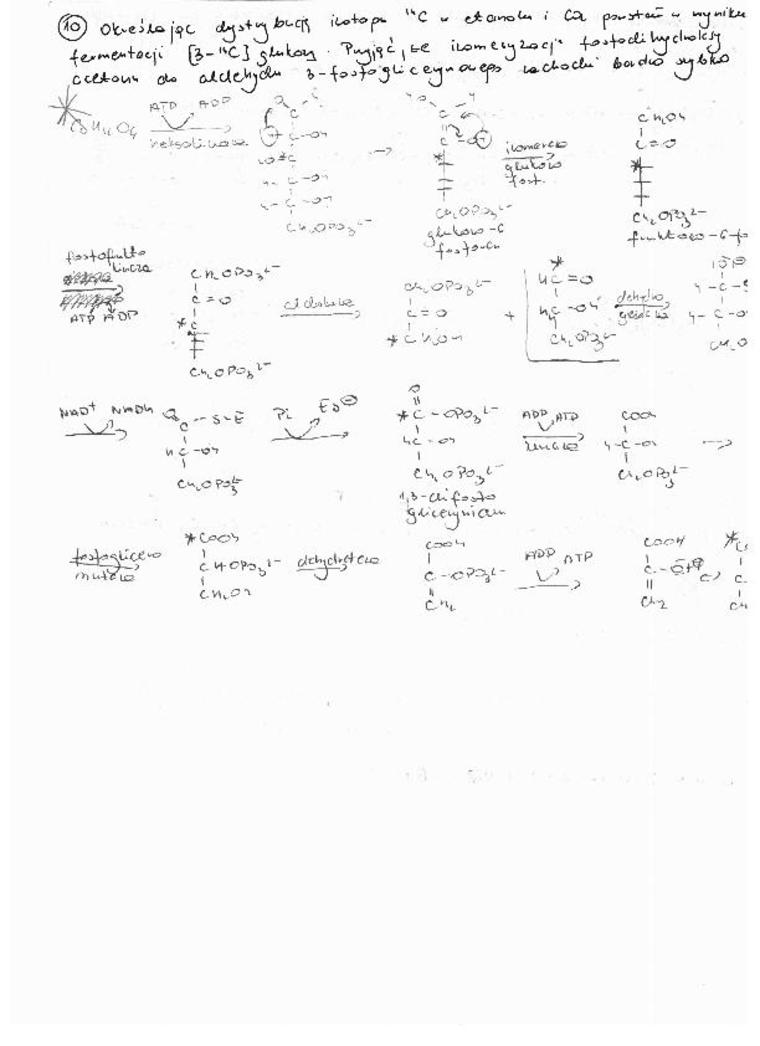 10 Określając dystrybucję izotopu ¹⁴C w etanolu i CO₂ powstał w wyniku
fermentacji [3-¹⁴C] glukozy. Przyjąć, że izomeryzacja fosfodihydroksy
acetonu do aldehydu 3-fosfoglicerynowego zachodzi bardzo szybko
ATP ADP
heksokinaza
C-OH
CH₂OPO₃²⁻
CH₂OPO₃²⁻
glukozo-6
fosforan
izomeraza
glukozo
fosf.
CH₂OH
C=O
CH₂OPO₃²⁻
fruktozo-6-fo
fosfofrukto
kinaza
ATP ADP
CH₂OPO₃²⁻
C=O
* C
CH₂OPO₃²⁻
aldolaza
CH₂OPO₃²⁻
C=O
* CH₂OH
+
*
HC=O
HC-OH
CH₂OPO₃²⁻
NAD⁺ NADH
C-S-E
HC-OH
CH₂OPO₃²⁻
Pi
O
* C-OPO₃²⁻
HC-OH
CH₂OPO₃²⁻
1,3-difosfo
glicerynian
ADP ATP
kinaza
COOH
H-C-OH
CH₂OPO₃²⁻
fosfoglicero
mutaza
* COOH
CHOPO₃²⁻
CH₂OH
dehydrataza
COOH
C-OPO₃²⁻
CH₂
ADP ATP
COOH
CH₂